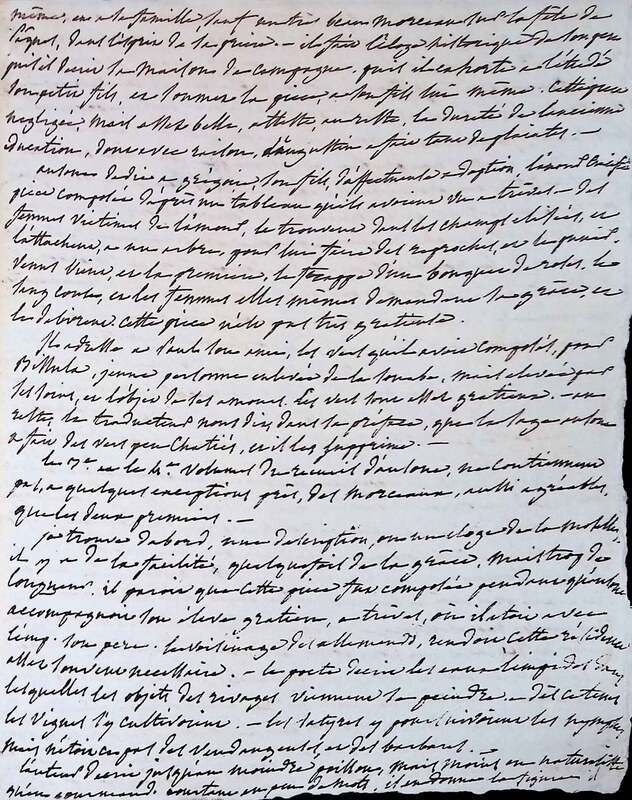 même, en a la famille sauf un très beau morceau sur la fête de
Pâques, dans l'esprit de la prière. - il fait l'éloge historique de son père
puis il décrit sa maison de campagne, puis il exhorte a l'étude
son petit fils, et soumet la pièce, a son fils lui même. Cette pièce
négligée, mais assez belle, atteste, au reste, la dureté de l'ancienne
éducation, dont avec raison, augustin a fait tant de plaintes. -
ausone dédie a grégoire son fils, d'affection et d'adoption, l'amour Crucifié
pièce composée d'après un tableau qu'ils avoient vu a trèves - des
femmes victimes de l'amour, le trouvent dans les champs élisées, et
l'attachent, a un arbre, pour lui faire des reproches, et le punir.
Venus vient, et la première, le frappe d'un bouquet de roses. le
sang coule, et les femmes elles mêmes demandent sa grâce, et
le délivrent. Cette pièce n'est pas très gratieuse.
Il adresse a Paul son ami, les vers qu'il avoit composés, pour
Bissula, jeune personne enlevée de la souabe, mais élevée par
ses soins, et l'objet de ses amours. les vers sont assez gratieux. - au
reste, le traducteur nous dit, dans la préface, que le sage ausone
a fait des vers peu chatiés, et il les supprime. -
les 3e et le 4e volumes du recueil d'ausone, ne contiennent
pas, a quelques exceptions près, des morceaux, aussi agréables,
que les deux premiers. -
je trouve d'abord, une description, ou un éloge de la moselle,
il y a de la facilité, quelquefois de la grâce, mais trop de
longueurs. il paroit que cette pièce fut composée pendant qu'ausone
accompagnoit son élève gratien, a trèves, où il étoit avec
l'emp. son père. le voisinage des allemands, rendoit cette résidence
assez souvent nécessaire. - le poète décrit les eaux limpides dans
lesquelles les objets des rivages viennent se peindre. - dès ce tems
les vignes s'y cultivoient. - les satyres y poursuivoient les nymphes
mais n'étoient pas des vendangeuses, et des barbares. -
l'auteur décrit jusqu'au moindre poisson, mais moins en naturaliste
qu'en gourmand. pourtant en peu de mots, il en donne la figure